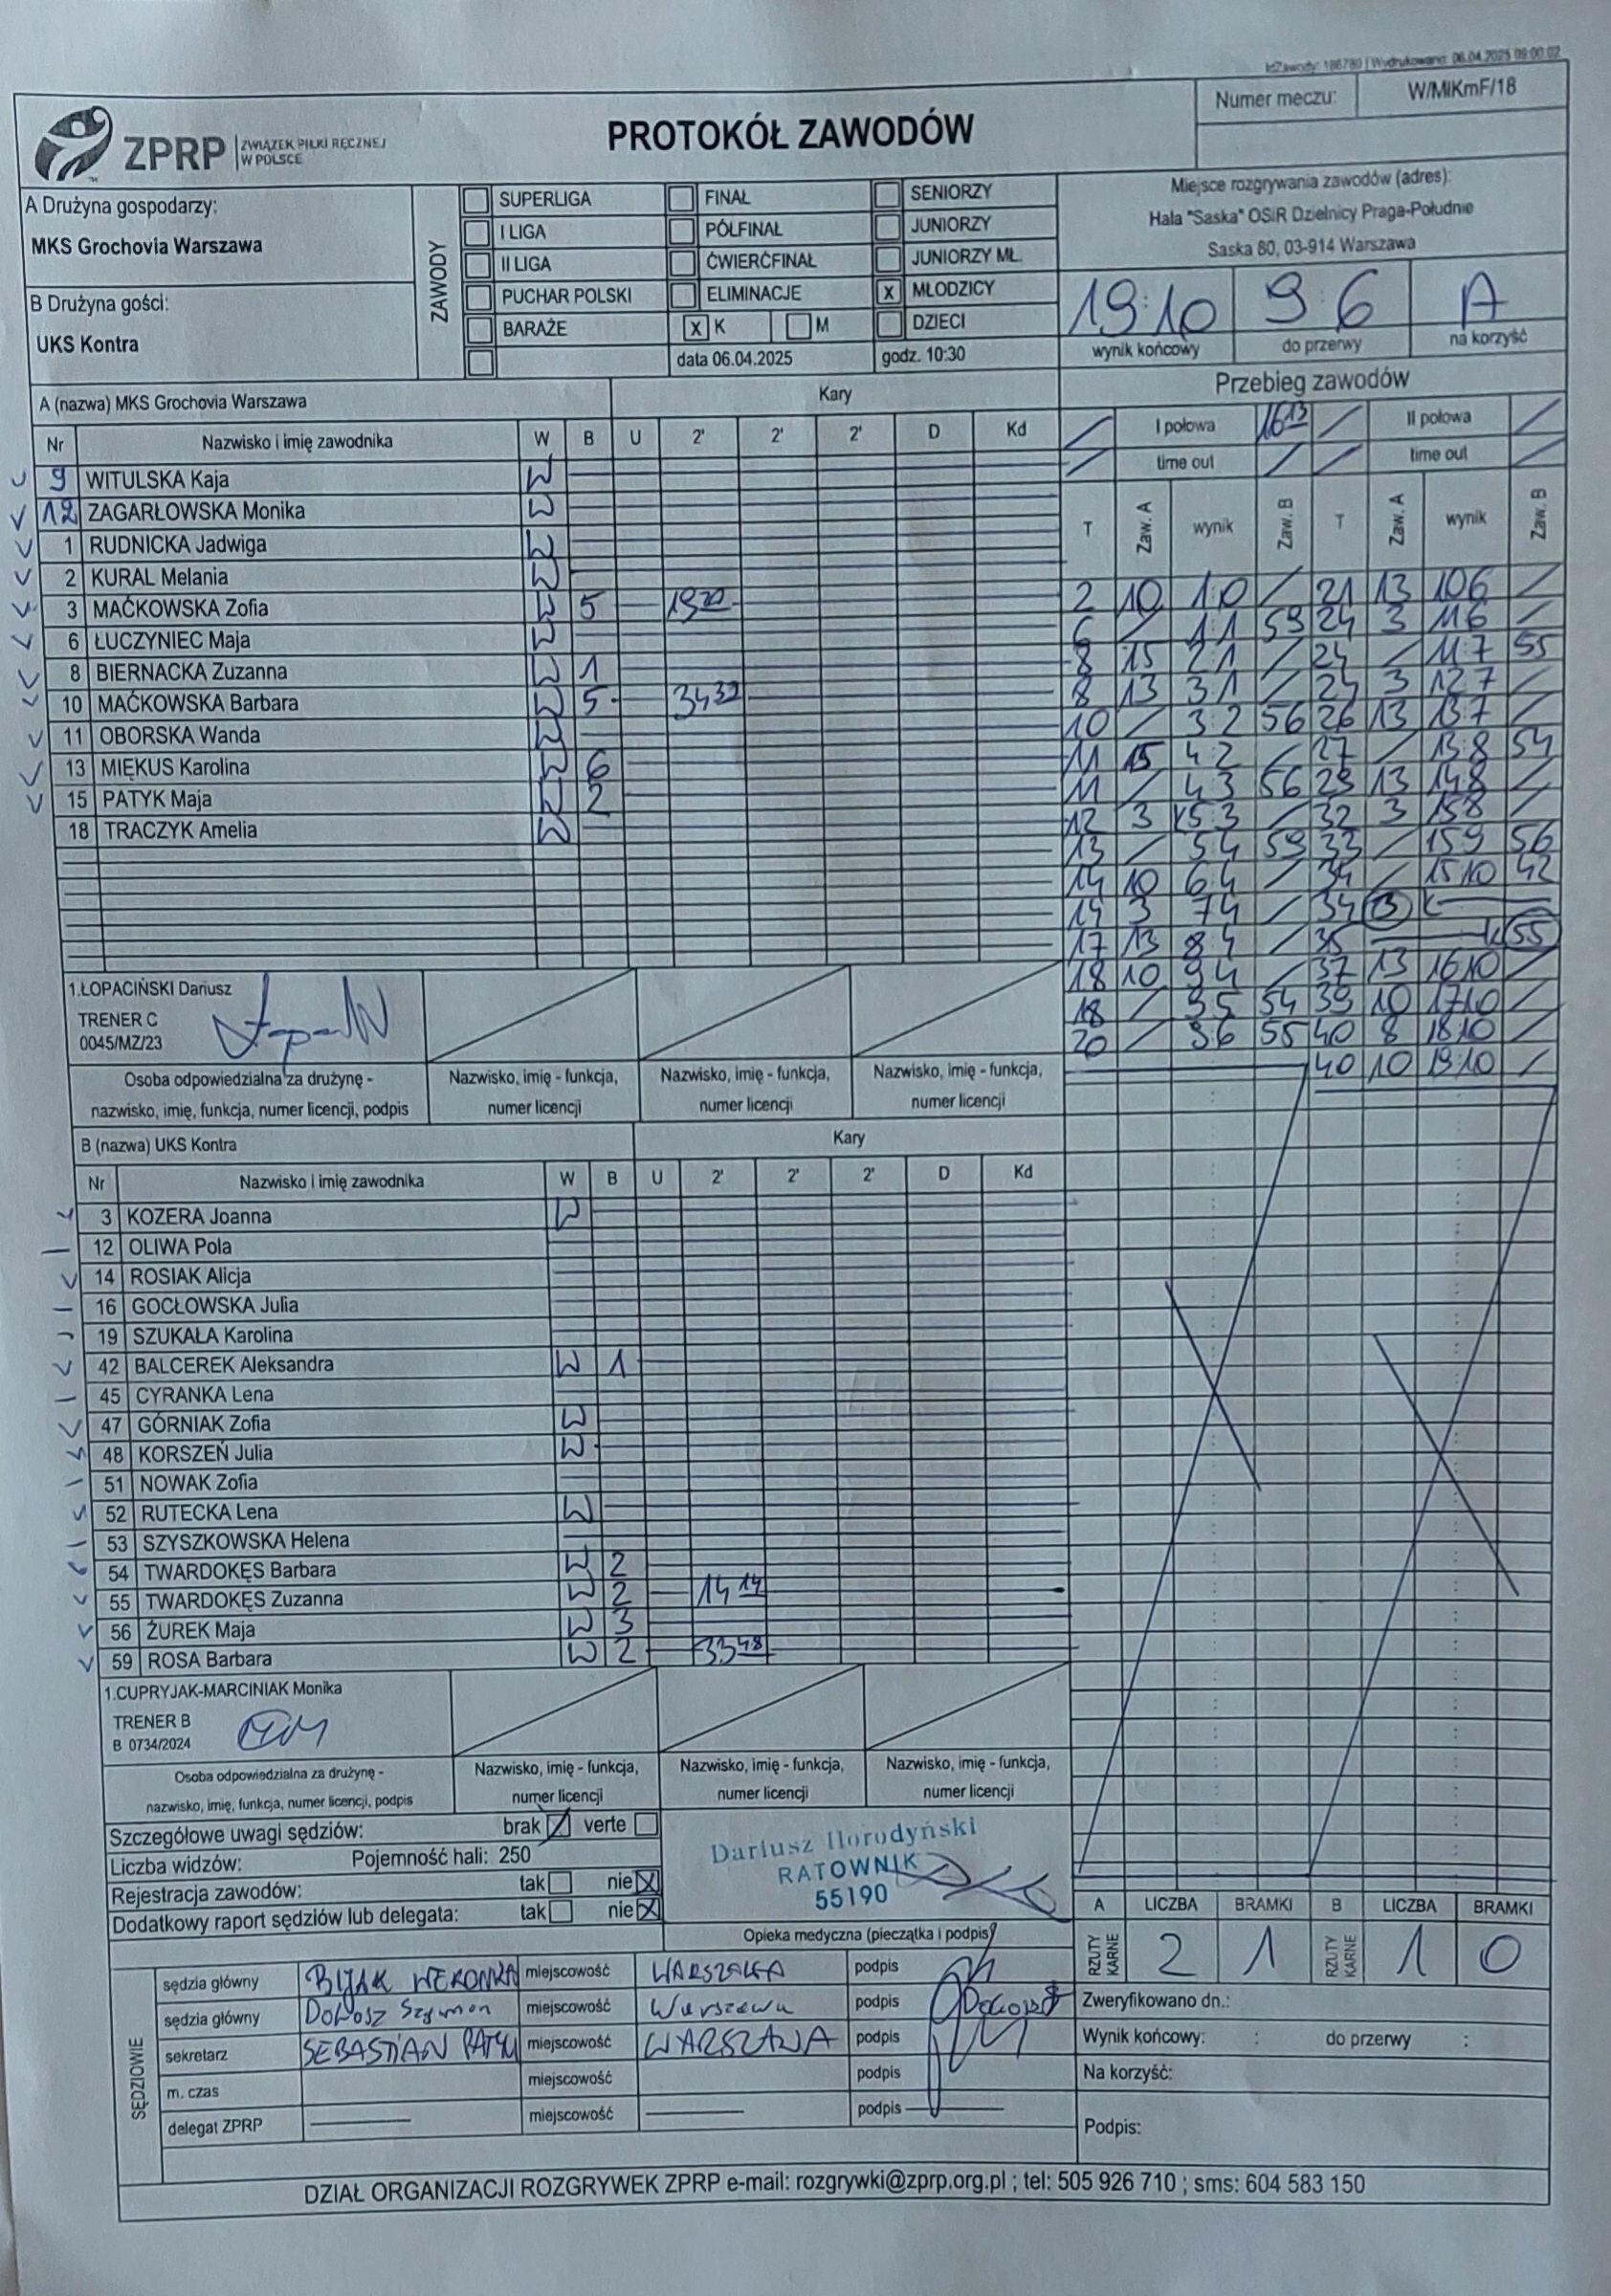 IdZawody: 186780 | Wydrukowano: 06.04.2025 09:00:02
Numer meczu: W/MlKmF/18
ZPRP ZWIĄZEK PIŁKI RĘCZNEJ
W POLSCE
PROTOKÓŁ ZAWODÓW
A Drużyna gospodarzy:
MKS Grochovia Warszawa
B Drużyna gości:
UKS Kontra
ZAWODY
SUPERLIGA FINAŁ SENIORZY
I LIGA PÓŁFINAŁ JUNIORZY
II LIGA ĆWIERĆFINAŁ JUNIORZY MŁ.
PUCHAR POLSKI ELIMINACJE X MŁODZICY
BARAŻE X K M DZIECI
data 06.04.2025 godz. 10:30
Miejsce rozgrywania zawodów (adres):
Hala "Saska" OSiR Dzielnicy Praga-Południe
Saska 80, 03-914 Warszawa
19:10 9:6 A
wynik końcowy do przerwy na korzyść
A (nazwa) MKS Grochovia Warszawa Kary
Nr Nazwisko i imię zawodnika W B U 2' 2' 2' D Kd
9 WITULSKA Kaja W
12 ZAGARŁOWSKA Monika W
1 RUDNICKA Jadwiga W
2 KURAL Melania W
3 MAĆKOWSKA Zofia W 5 19 20
6 ŁUCZYNIEC Maja W
8 BIERNACKA Zuzanna W 1
10 MAĆKOWSKA Barbara W 5 34 32
11 OBORSKA Wanda W
13 MIĘKUS Karolina W 6
15 PATYK Maja W 2
18 TRACZYK Amelia W
1.ŁOPACIŃSKI Dariusz
TRENER C
0045/MZ/23
Osoba odpowiedzialna za drużynę -
nazwisko, imię, funkcja, numer licencji, podpis
Nazwisko, imię - funkcja,
numer licencji
Nazwisko, imię - funkcja,
numer licencji
Nazwisko, imię - funkcja,
numer licencji
Przebieg zawodów
I połowa 16 13 II połowa
time out time out
T Zaw. A wynik Zaw. B T Zaw. A wynik Zaw. B
2 10 1:0 / 21 13 10:6 /
6 / 1:1 59 24 3 11:6 /
8 15 2:1 / 24 / 11:7 55
8 13 3:1 / 24 3 12:7 /
10 / 3:2 56 26 13 13:7 /
11 15 4:2 / 27 / 13:8 54
11 / 4:3 56 29 13 14:8 /
12 3 K5:3 / 32 3 15:8 /
13 / 5:4 59 33 / 15:9 56
14 10 6:4 / 34 / 15:10 42
14 3 7:4 / 34 13 K
17 13 8:4 / 35 K 55
18 10 9:4 / 37 13 16:10 /
18 / 9:5 54 39 10 17:10 /
20 / 9:6 55 40 8 18:10 /
40 10 19:10 /
B (nazwa) UKS Kontra Kary
Nr Nazwisko i imię zawodnika W B U 2' 2' 2' D Kd
3 KOZERA Joanna W
12 OLIWA Pola
14 ROSIAK Alicja
16 GOCŁOWSKA Julia
19 SZUKAŁA Karolina
42 BALCEREK Aleksandra W 1
45 CYRANKA Lena
47 GÓRNIAK Zofia W
48 KORSZEŃ Julia W
51 NOWAK Zofia
52 RUTECKA Lena W
53 SZYSZKOWSKA Helena
54 TWARDOKĘS Barbara W 2
55 TWARDOKĘS Zuzanna W 2 14 14
56 ŻUREK Maja W 3
59 ROSA Barbara W 2 33 48
1.CUPRYJAK-MARCINIAK Monika
TRENER B
B 0734/2024
Osoba odpowiedzialna za drużynę -
nazwisko, imię, funkcja, numer licencji, podpis
Nazwisko, imię - funkcja,
numer licencji
Nazwisko, imię - funkcja,
numer licencji
Nazwisko, imię - funkcja,
numer licencji
Szczegółowe uwagi sędziów: brak verte
Liczba widzów: Pojemność hali: 250
Rejestracja zawodów: tak nie X
Dodatkowy raport sędziów lub delegata: tak nie X
Dariusz Horodyński
RATOWNIK
55190
Opieka medyczna (pieczątka i podpis)
A LICZBA BRAMKI B LICZBA BRAMKI
RZUTY KARNE 2 1 RZUTY KARNE 1 0
SĘDZIOWIE
sędzia główny BIJAK WERONIKA miejscowość WARSZAWA podpis
sędzia główny Dołosz Szymon miejscowość Warszawa podpis
sekretarz SEBASTIAN PATYK miejscowość WARSZAWA podpis
m. czas miejscowość podpis
delegat ZPRP miejscowość podpis
Zweryfikowano dn.:
Wynik końcowy: : do przerwy :
Na korzyść:
Podpis:
DZIAŁ ORGANIZACJI ROZGRYWEK ZPRP e-mail: rozgrywki@zprp.org.pl ; tel: 505 926 710 ; sms: 604 583 150